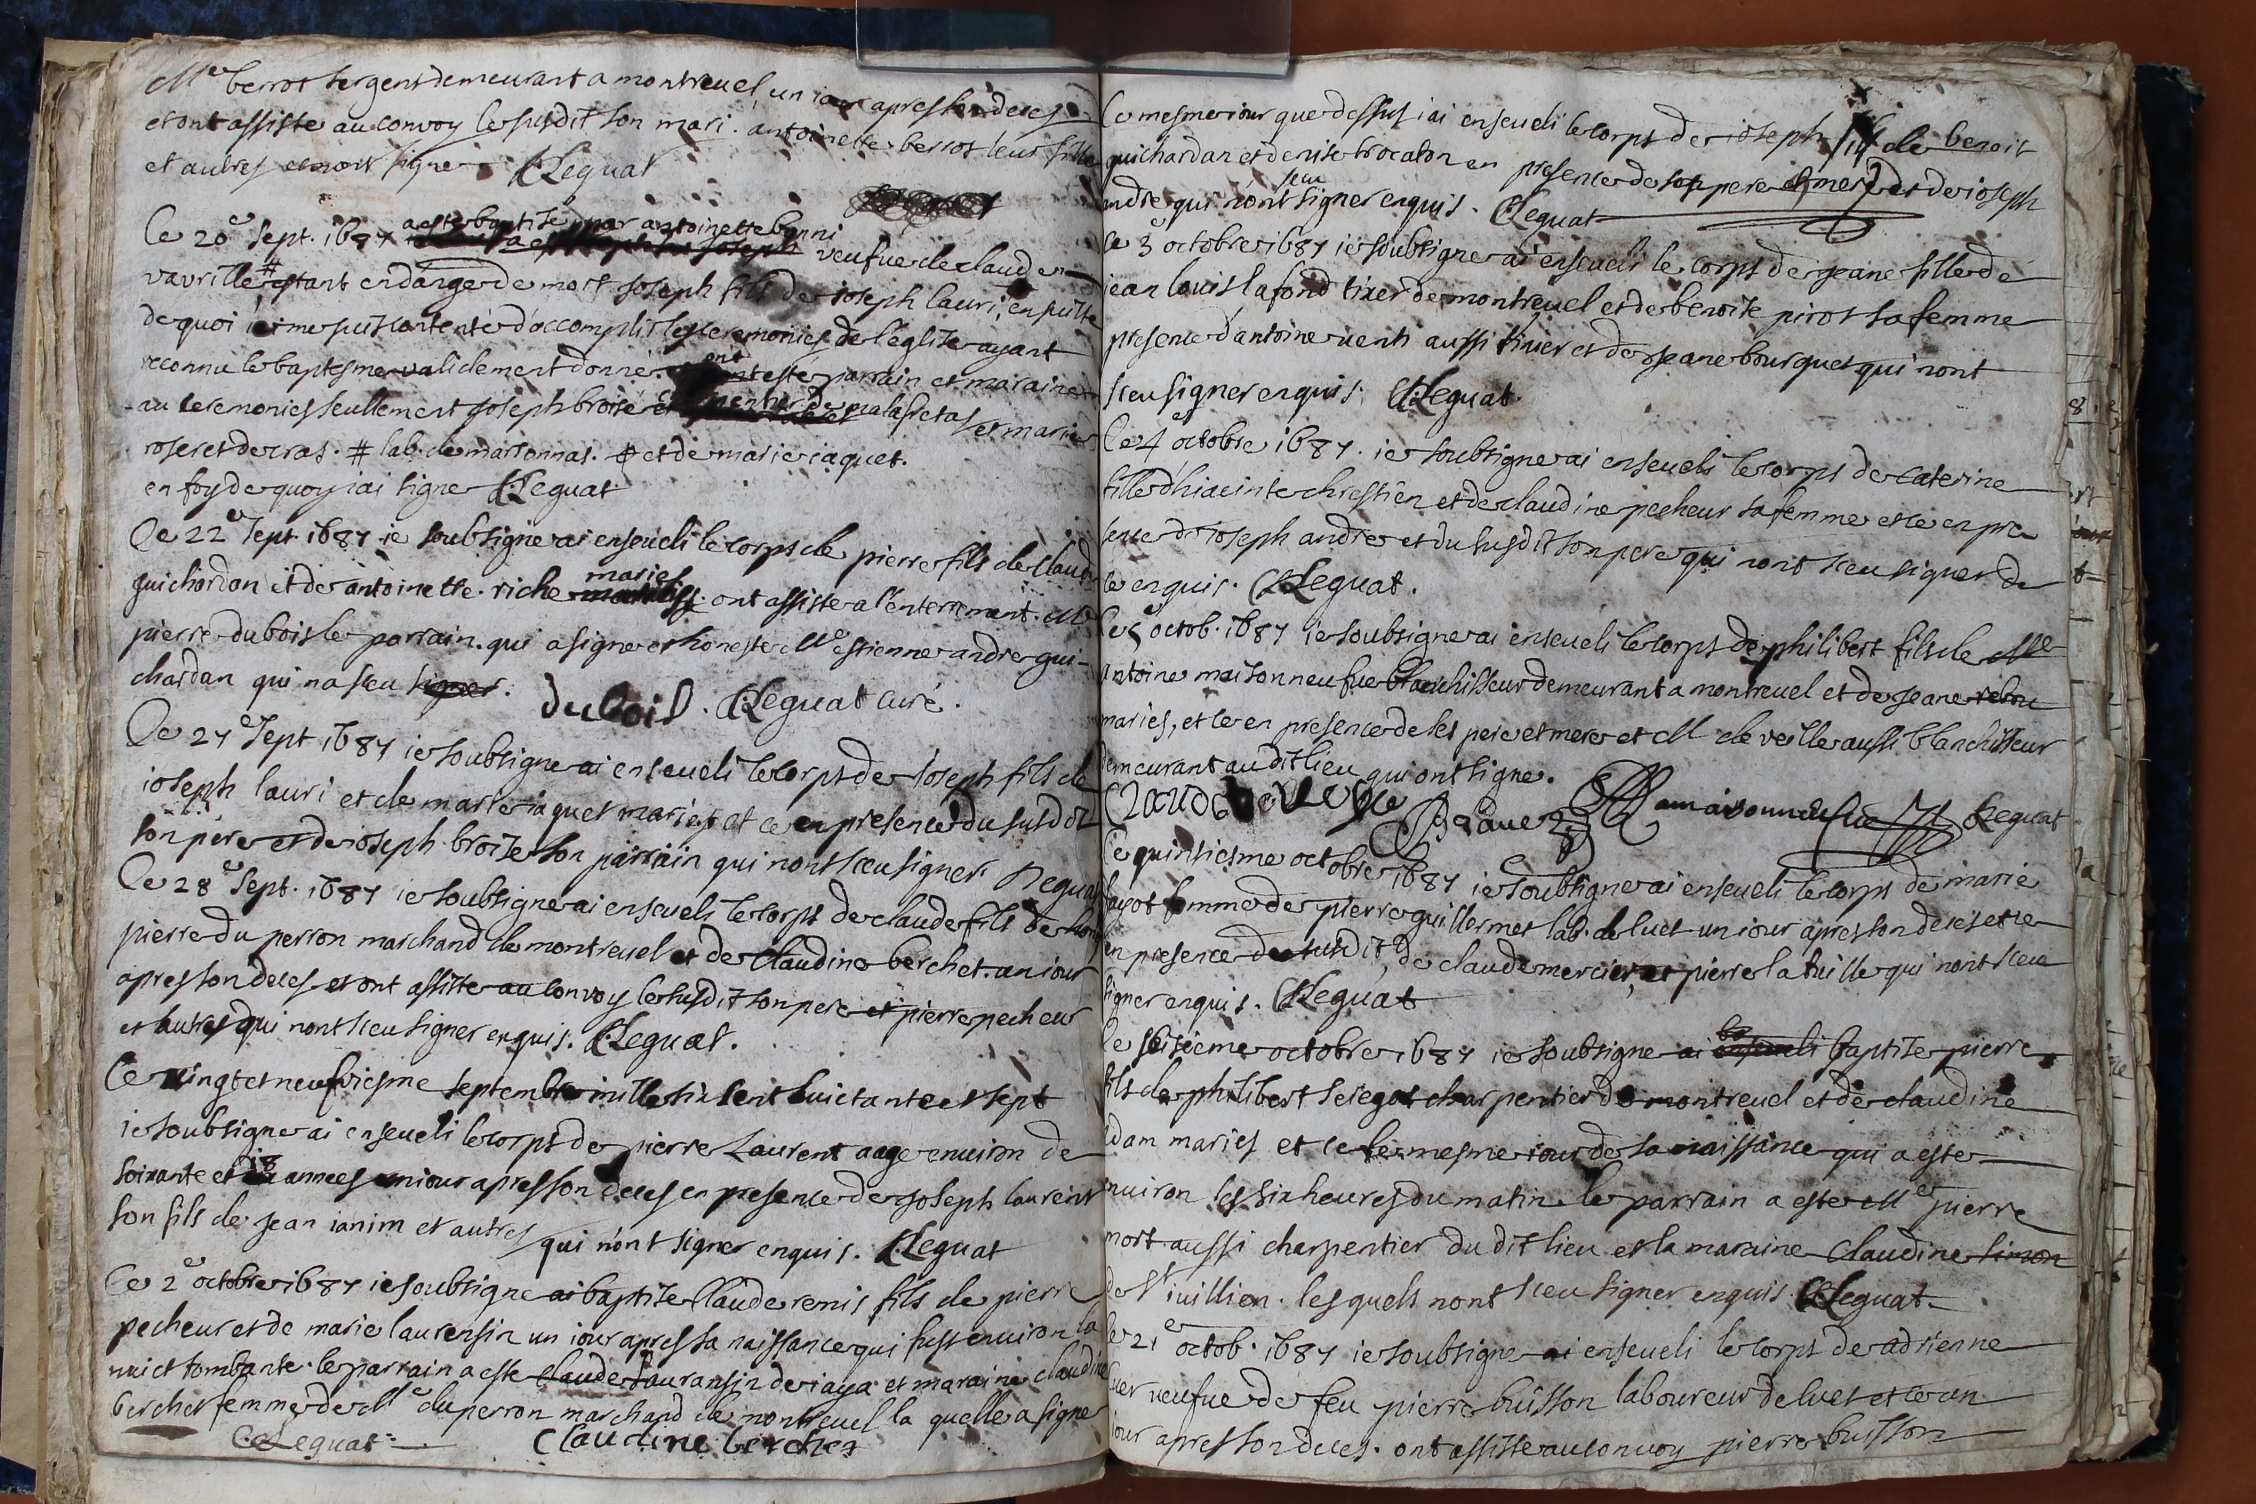 Me berrot sergent demeurant a montreuel, un iour apres son deces
et ont assiste au convoy le susdit son mari. antoinette berrot leur fille
et autres et nont signe CLeguat
Ce 20e sept. 1687 a este baptise par antoinette bonni veufue de claude
vavrille # estant en danger de mort Joseph fils de ioseph lauri, en suitte
de quoi ie me suis contenté d'accomplir les ceremonies de l'eglise ayant
reconnu le baptesme validement donné. ont este parrain et maraine
au ceremonies seullement Joseph broise et de malafretas et marie
roseret de cras. # lab. de marsonnas. # et de marie iaquet.
en foy de quoy iai signe CLeguat
Ce 22e sept 1687 ie soubsigne ai enseueli le corps de pierre fils de claude
guichardan et de antoinette riche maries. ont assiste a l'enterrement. Me
pierre dubois le parrain. qui a signe et honeste Me estienne andre gui-
chardan qui na sceu signer. dubois. CLeguat curé.
Ce 27e sept 1687 ie soubsigne ai enseueli le corps de Joseph fils de
ioseph lauri et de marie iaquet maries et ce en presence du susdit
son pere et de ioseph broise son parrain qui nont sceu signer Leguat
Ce 28e sept. 1687 ie soubsigne ai enseueli le corps de claude fils de hon
pierre du perron marchand de montreuel et de Claudine berchet. un iour
apres son deces et ont assiste au convoy le susdit son pere et pierre pecheur
et autres qui nont sceu signer enquis. CLeguat.
Ce vingt et neufviesme septembre mille six cent huictante et sept
ie soubsigne ai enseueli le corps de pierre Laurent aage environ de
soixante et 18 annees un iour apres son deces en presence de Joseph laurent
son fils de Jean ianim et autres qui nont signer enquis. CLeguat
Ce 2e octobre 1687 ie soubsigne ai baptise Claude remis fils de pierre
pecheur et de marie laurensin un iour apres sa naissance qui fust environ la
nuict tombante. le parrain a este Claude Lauransin de iaya et maraine claudine
berchet femme de Me duperron marchand de montreuel la quelle a signe
CLeguat Claudine berchet
Ce mesme iour que dessus iai enseueli le corps de ioseph fils de benoit
guichardan et denise brocalon en presence de son pere et mere et de ioseph
andre qui nont sceu signer enquis. CLeguat
Ce 3e octobre 1687 ie soubsigne ai enseueli le corps de Jeane fille de
jean louis lafond tixer de montreuel et de benoite pirot sa femme
presence d'antoine uenti aussi tixier et de Jeane bourquet qui nont
sceu signer enquis. CLeguat.
Ce 4e octobre 1687. ie soubsigne ai enseueli le corps de Caterine
fille d'hiacinte chrestien et de claudine pecheur sa femme et ce en pre
sence de Joseph andre et du susdit son pere qui nont sceu signer de
ce enquis. CLeguat.
Ce 5e octob. 1687 ie soubsigne ai enseueli le corps de philibert fils de Me
antoine maisonneufue blanchisseur demeurant a montreuel et de Jeane rebou
maries, et ce en presence de ses pere et mere et M de veille aussi blanchisseur
demeurant au dit lieu qui ont signe.
Claude de Veylle A Lamaisonneufue CLeguat
Ce quinsiesme octobre 1687 ie soubsigne ai enseueli le corps de marie
fayot femme de pierre guillermet lab. de luet un iour apres son deces et ce
en presence de susdit, de claude mercier, et pierre la tuille qui nont sceu
signer enquis. CLeguat
Ce seisieme octobre 1687 ie soubsigne ai enseueli baptise pierre
fils de philibert seregot charpentier de montreuel et de claudine
adam maries et ce le mesme iour de sa naissance qui a este
enuiron les six heures du matin le parrain a este Me pierre
mort aussi charpentier du dit lieu et la maraine claudine simon
de st iuillien. les quels nont sceu signer enquis CLeguat
Ce 21e octob. 1687 ie soubsigne ai enseueli le corps de adrienne
veufue de feu pierre buisson laboureur de luet et ce un
iour apres son deces. ont assiste au convoy pierre buisson